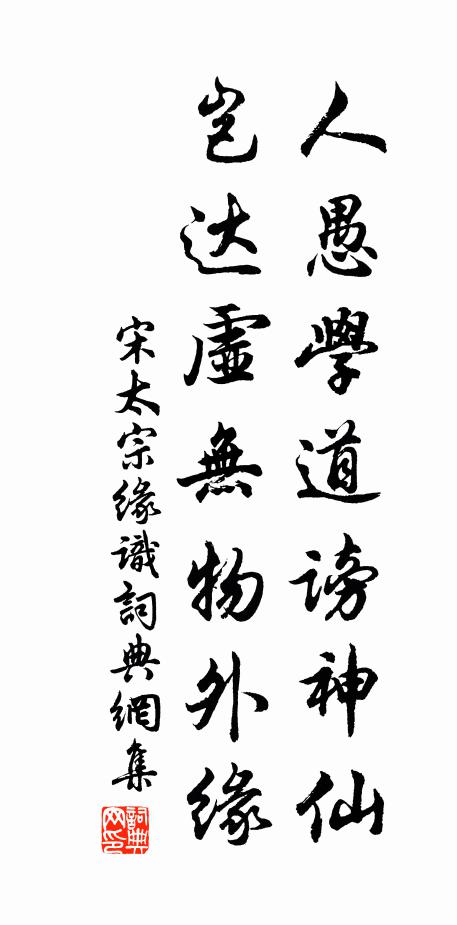 人愚學道謗神仙
岂达虛無物外緣
宋太宗緣識詞典網集
詞典网印